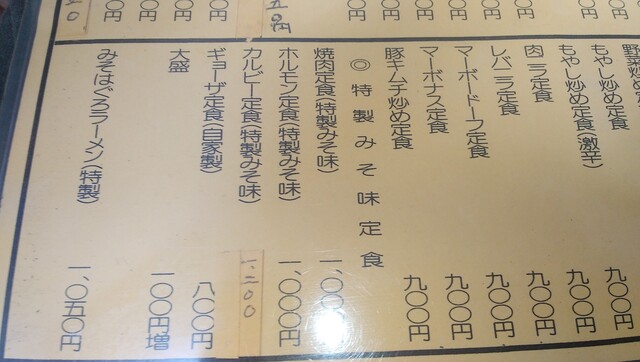 五〇円
野菜炒め定
円
もやし炒め定食
九〇〇円
もやし炒め定食(激辛)
九〇〇円
肉ニラ定食
九〇〇円
レバニラ定食
九〇〇円
マーボードーフ定食
九〇〇円
マーボナス定食
九〇〇円
豚キムチ炒め定食
九〇〇円
◎特製みそ味定食
焼肉定食(特製みそ味)
一、〇〇〇円
ホルモン定食(特製みそ味)
一、〇〇〇円
カルビー定食(特製みそ味)
1.200
ギョーザ定食(自家製)
八〇〇円
大盛
一〇〇円増
みそはぐろラーメン(特製)
一、〇五〇円